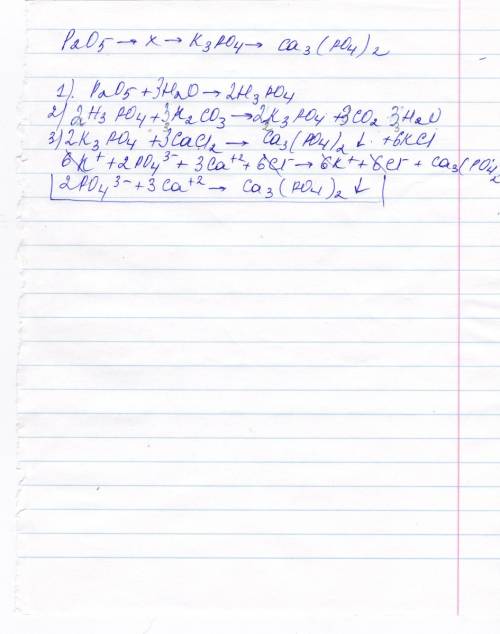 P2O5 → x → K3PO4 → Ca3(PO4)2
1). P2O5 + 3H2O → 2H3PO4
2) 2H3PO4 + 3K2CO3 → 2K3PO4 + 3CO2 3H2O
3) 2K3PO4 + 3CaCl2 → Ca3(PO4)2 ↓ + 6KCl
6K+ + 2PO4 3- + 3Ca+2 + 6Cl- → 6K+ + 6Cl- + Ca3(PO4)2
2PO4 3- + 3Ca+2 → Ca3(PO4)2 ↓